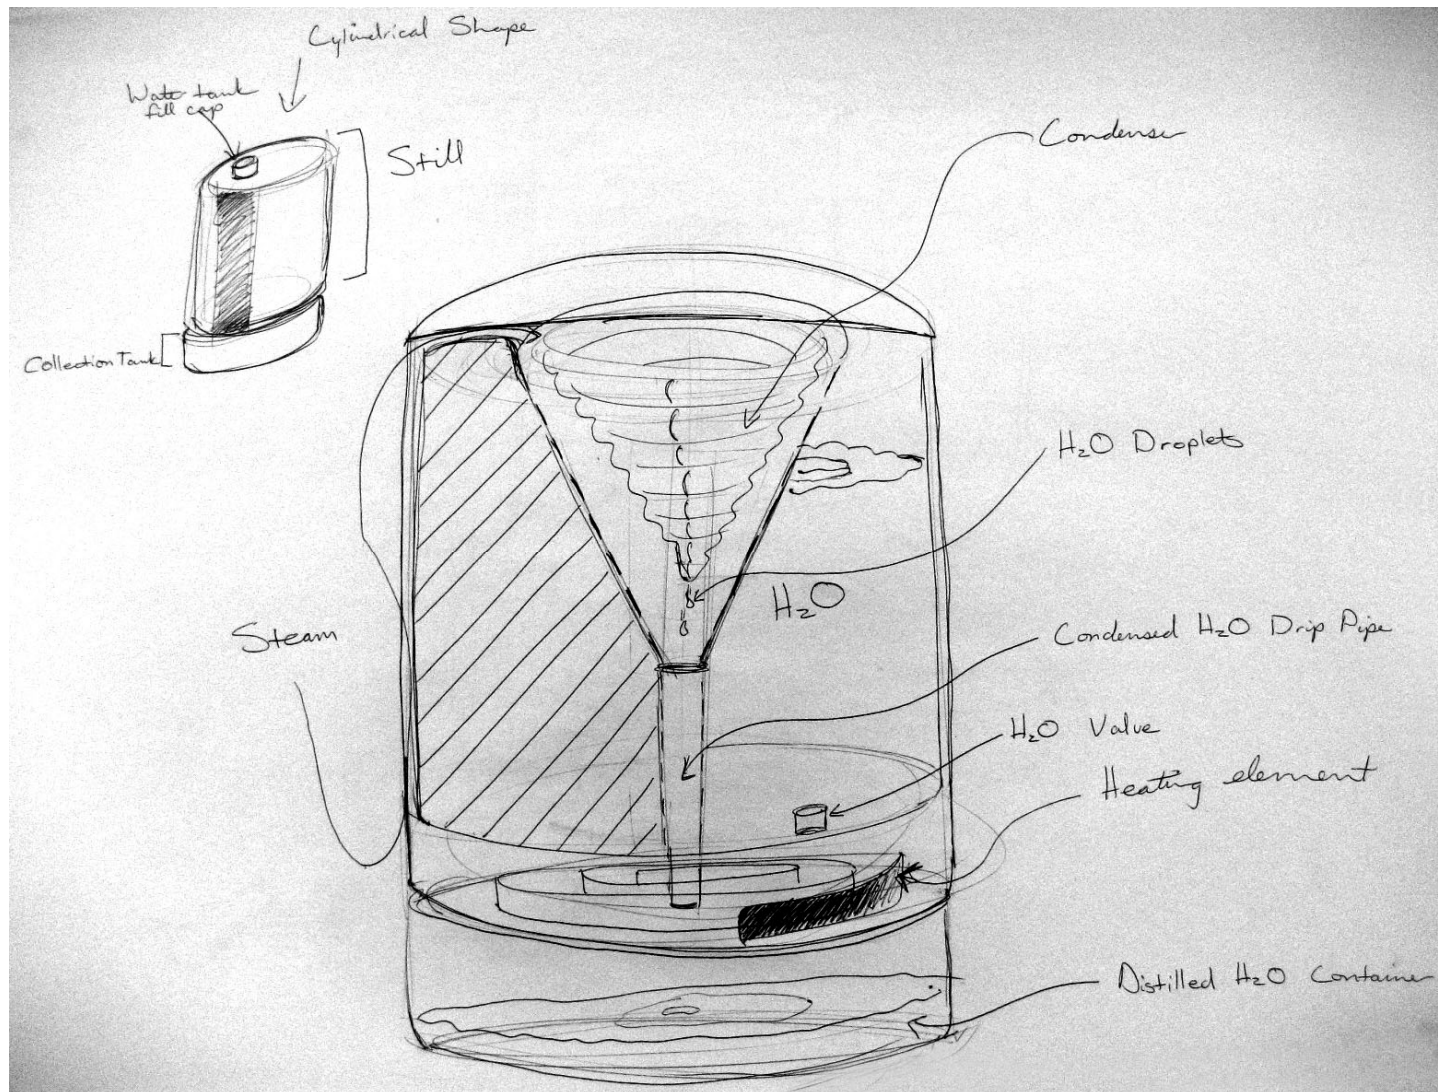 Cylindrical Shape
Water tank
fill cap
Still
Collection Tank
Condenser
H₂O Droplets
H₂O
Steam
Condensed H₂O Drip Pipe
H₂O Valve
Heating element
Distilled H₂O Container